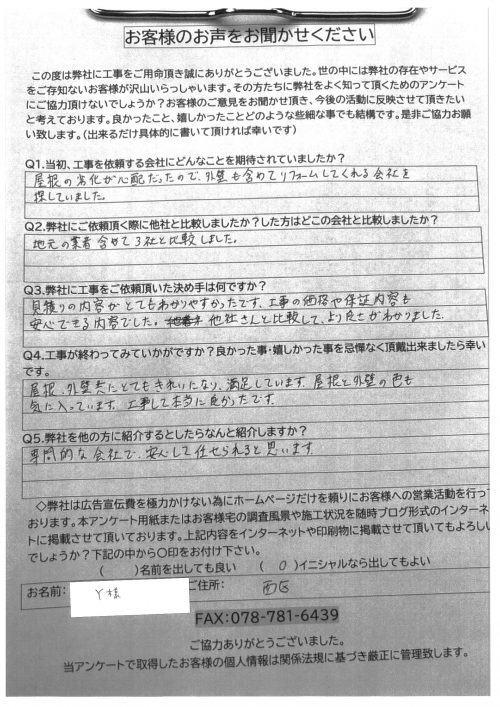 お客様のお声をお聞かせください
この度は弊社に工事をご用命頂き誠にありがとうございました。世の中には弊社の存在やサービス
をご存知ないお客様が沢山いらっしゃいます。その方たちに弊社をよく知って頂くためのアンケート
にご協力頂けないでしょうか?お客様のご意見をお聞かせ頂き、今後の活動に反映させて頂きたい
と考えております。良かったこと、嬉しかったことどのような些細な事でも結構です。是非ご協力お願
い致します。(出来るだけ具体的に書いて頂ければ幸いです)
Q1.当初、工事を依頼する会社にどんなことを期待されていましたか?
屋根の劣化が心配だったので、外壁も含めてリフォームしてくれる会社を
探していました。
Q2.弊社にご依頼頂く際に他社と比較しましたか?した方はどこの会社と比較しましたか?
地元の業者含めて3社と比較しました。
Q3.弊社に工事をご依頼頂いた決め手は何ですか?
見積りの内容がとてもわかりやすかったです。工事の価格や保証内容も
安心できる内容でした。他社さんと比較して、より良さがわかりました。
Q4.工事が終わってみていかがですか?良かった事・嬉しかった事を忌憚なく頂戴出来ましたら幸い
です。
屋根、外壁共にとてもきれいになり、満足しています。屋根と外壁の色も
気に入っています。工事して本当に良かったです。
Q5.弊社を他の方に紹介するとしたらなんと紹介しますか?
専門的な会社で、安心して任せられると思います
◇弊社は広告宣伝費を極力かけない為にホームページだけを頼りにお客様への営業活動を行っ
ております。本アンケート用紙またはお客様宅の調査風景や施工状況を随時ブログ形式のインターネ
トに掲載させて頂いております。上記内容をインターネットや印刷物に掲載させて頂いてもよろしい
でしょうか?下記の中から〇印をお付け下さい。
( )名前を出しても良い ( O )イニシャルなら出してもよい
お名前: Y様 ご住所: 西区
FAX:078-781-6439
ご協力ありがとうございました。
当アンケートで取得したお客様の個人情報は関係法規に基づき厳正に管理致します。